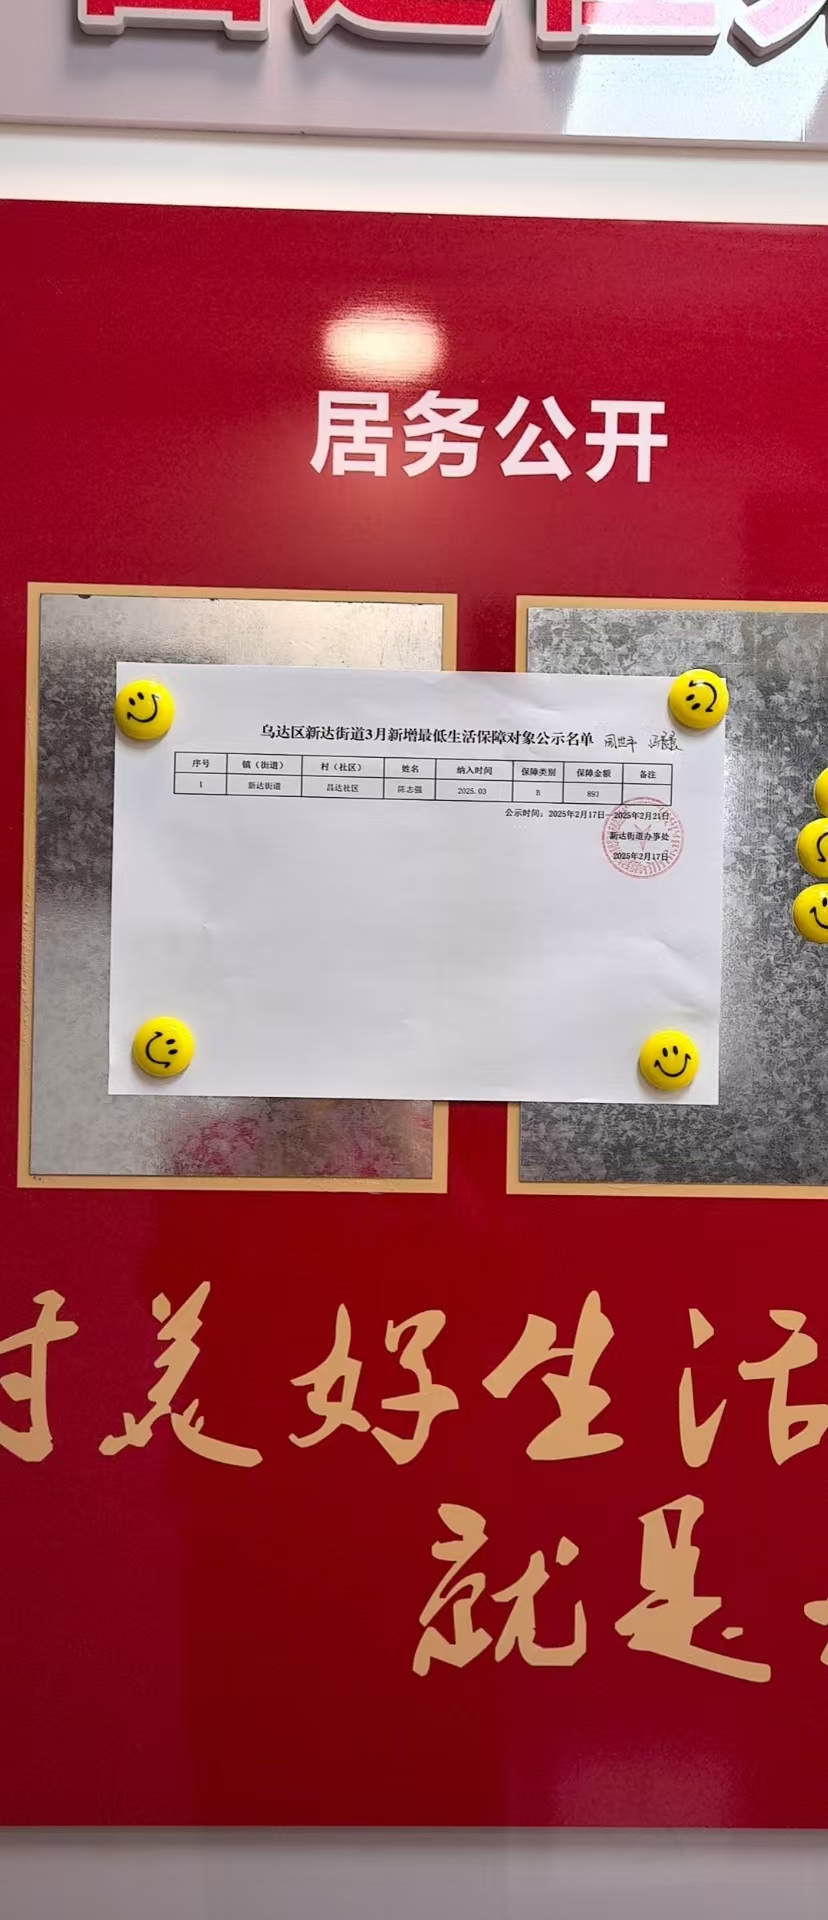 居务公开
乌达区新达街道3月新增最低生活保障对象公示名单
序号 镇（街道） 村（社区） 姓名 纳入时间 保障类别 保障金额 备注
1 新达街道 昌达社区 陈志强 2025.03 B 893
公示时间：2025年2月17日—2025年2月21日
新达街道办事处
2025年2月17日
美好生活
就是